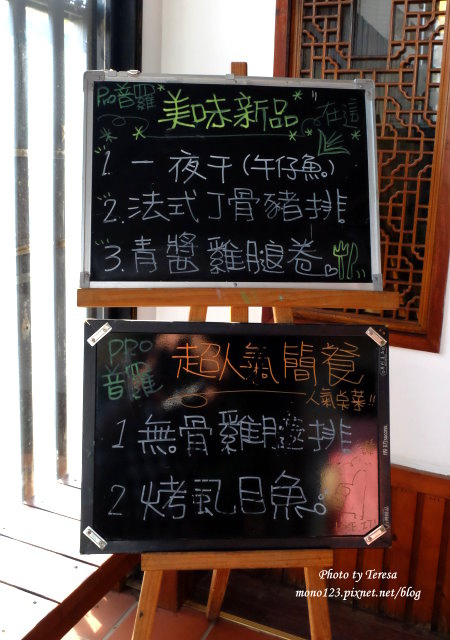 Pro普羅 美味新品 在這
1. 一夜干(午仔魚)
2. 法式丁骨豬排
3. 青醬雞腿卷
PRO普羅 超人氣簡餐
人氣桌菜!!
1 無骨雞腿排
2 烤虱目魚
Photo ty Teresa
mono123.pixnet.net/blog